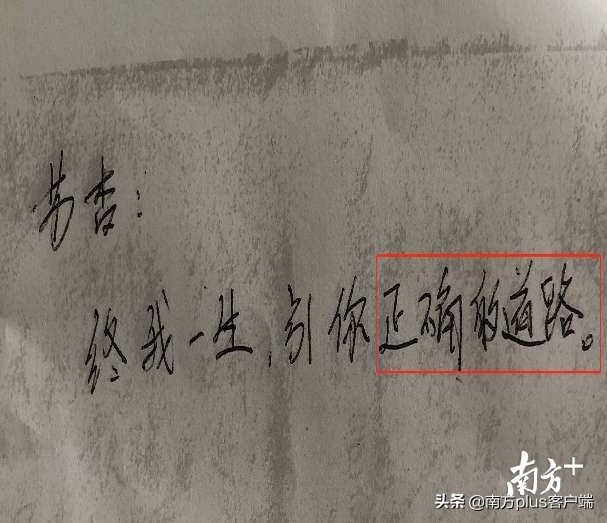 芳杏:
终我一生,引你正确的道路。
南方+
头条 @南方plus客户端